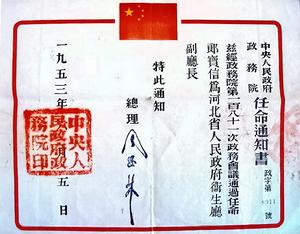 中央人民政府
政務院
任命通知書
政字第
號
茲經政務院第一百八十一次政務會議通過任命
郞寶信爲河北省人民政府衞生廳
副廳長
特此通知
總理
周恩來
一九五三年
五日
中央人
民政府政
務院印